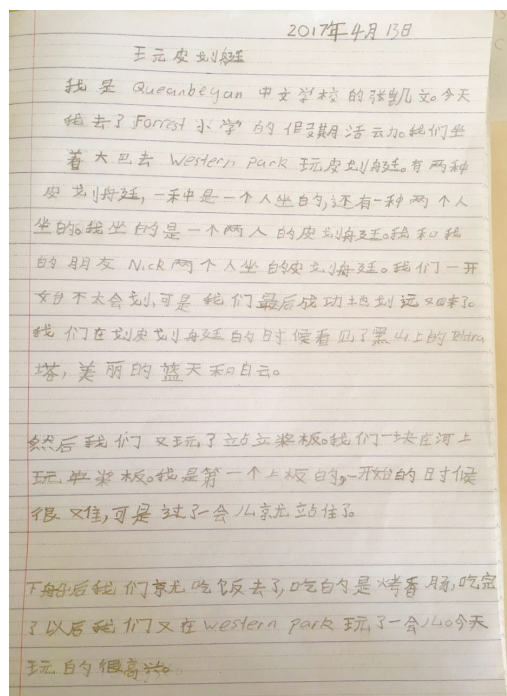 2017年4月13日
玩皮划艇
我是 Queanbeyan 中文学校的张凯文。今天
我去了 Forrest 小学的假期活动。我们坐
着大巴去 Western park 玩皮划艇。有两种
皮划艇，一种是一个人坐的，还有一种两个人
坐的。我坐的是一个两人的皮划艇。我和我
的朋友 Nick 两个人坐的皮划艇。我们一开
始不太会划，可是我们最后成功地划远又回来了。
我们在划皮划艇的时候看见了黑山上的 Telstra
塔，美丽的蓝天和白云。
然后我们又玩了站立桨板。我们一块在河上
玩 桨板。我是第一个上板的，一开始的时候
很难，可是过了一会儿就站住了。
下船后我们就吃饭去了，吃的是烤香肠，吃完
了以后我们又在 western park 玩了一会儿。今天
玩的很高兴。